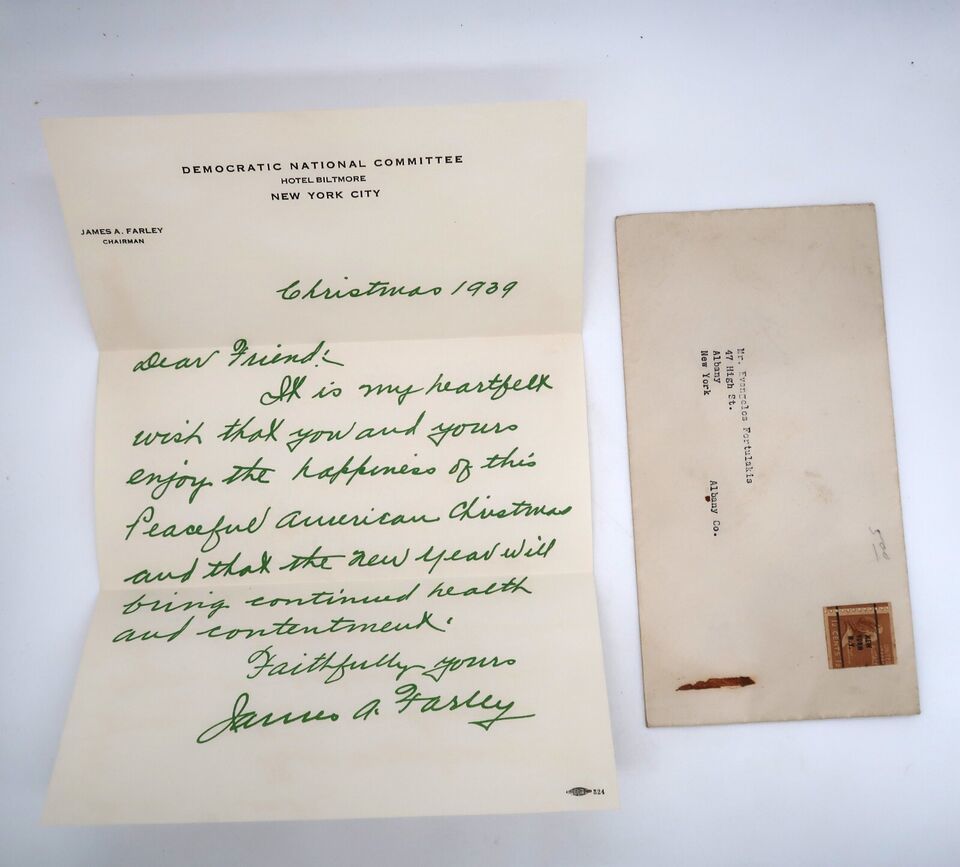 DEMOCRATIC NATIONAL COMMITTEE
HOTEL BILTMORE
NEW YORK CITY
JAMES A. FARLEY
CHAIRMAN
Christmas 1939
Dear Friend:
It is my heartfelt
wish that you and yours
enjoy the happiness of this
Peaceful American Christmas
and that the New Year will
bring continued health
and contentment.
Faithfully yours
James A. Farley
524
Mr. Evangelos Fortulakis
47 High St.
Albany
New York
Albany Co.
500
1½ CENTS 1½
NEW YORK
N.Y.